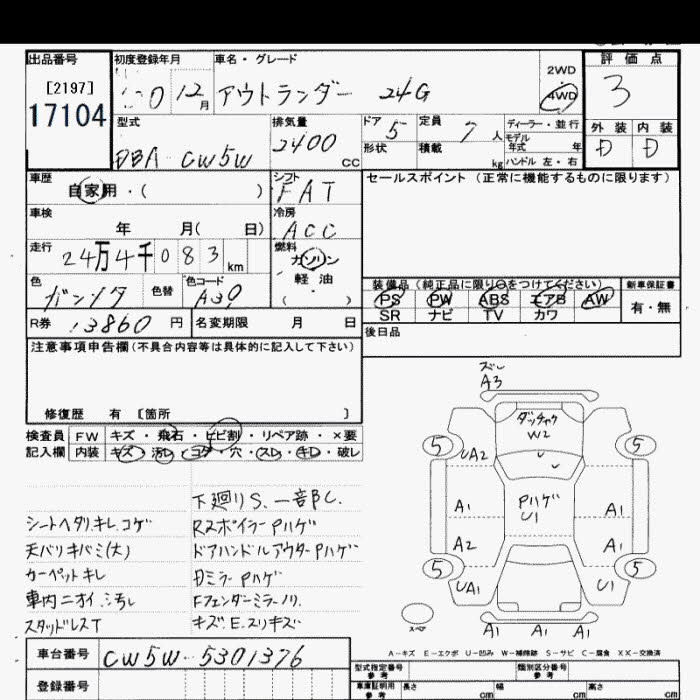 出品番号 初度登録年月 車名・グレード 2WD 評価点
[2197] 0 12月 アウトランダー 24G 4WD 3
17104 型式 排気量 ドア 5 定員 7人 ディーラー・並行 外装 内装
DBA-CW5W 2400cc 形状 積載 kg モデル年式 年 D D
ハンドル 左・右
車歴 自家用・( ) シフト FAT セールスポイント(正常に機能するものに限ります)
車検 年 月( 日) 冷房 ACC
走行 24万4千083km 燃料 ガソリン
軽油
( )
色 ガンメタ 色替 色コード A39 装備品(純正品に限り○をつけてください) 新車保証書
PS PW ABS エアB AW 有・無
SR ナビ TV カワ
R券 13860円 名変期限 月 日 後日品
注意事項申告欄(不具合内容等は具体的に記入して下さい)
修復歴 有 [箇所 ]
検査員 FW キズ・飛石・ヒビ割・リペア跡・×要
記入欄 内装 キズ・汚レ・コゲ・穴・スレ・キレ・破レ
下廻りS、一部C.
シートヘタリ、キレ、コゲ Rスポイラー Pハゲ
天バリキバミ(大) ドアハンドルアウターPハゲ
カーペットキレ Dミラー Pハゲ
車内ニオイ、汚レ Fフェンダーミラーノリ.
スタッドレスT キズ.E.スリキズ
ズレ
A3
ダッチャク
W2
5 5
UA2
A1 Pハゲ A1
U1
A2 A1
5 5
UA1 U1
スペア
A1 A1 A1
A-キズ E-エクボ U-凹み W-補修跡 S-サビ C-腐食 XX-交換済
車台番号 CW5W-5301376
型式指定番号 参考 類別区分番号 参考
登録番号 車庫証明用 参考 長さ cm 幅 cm 高さ cm